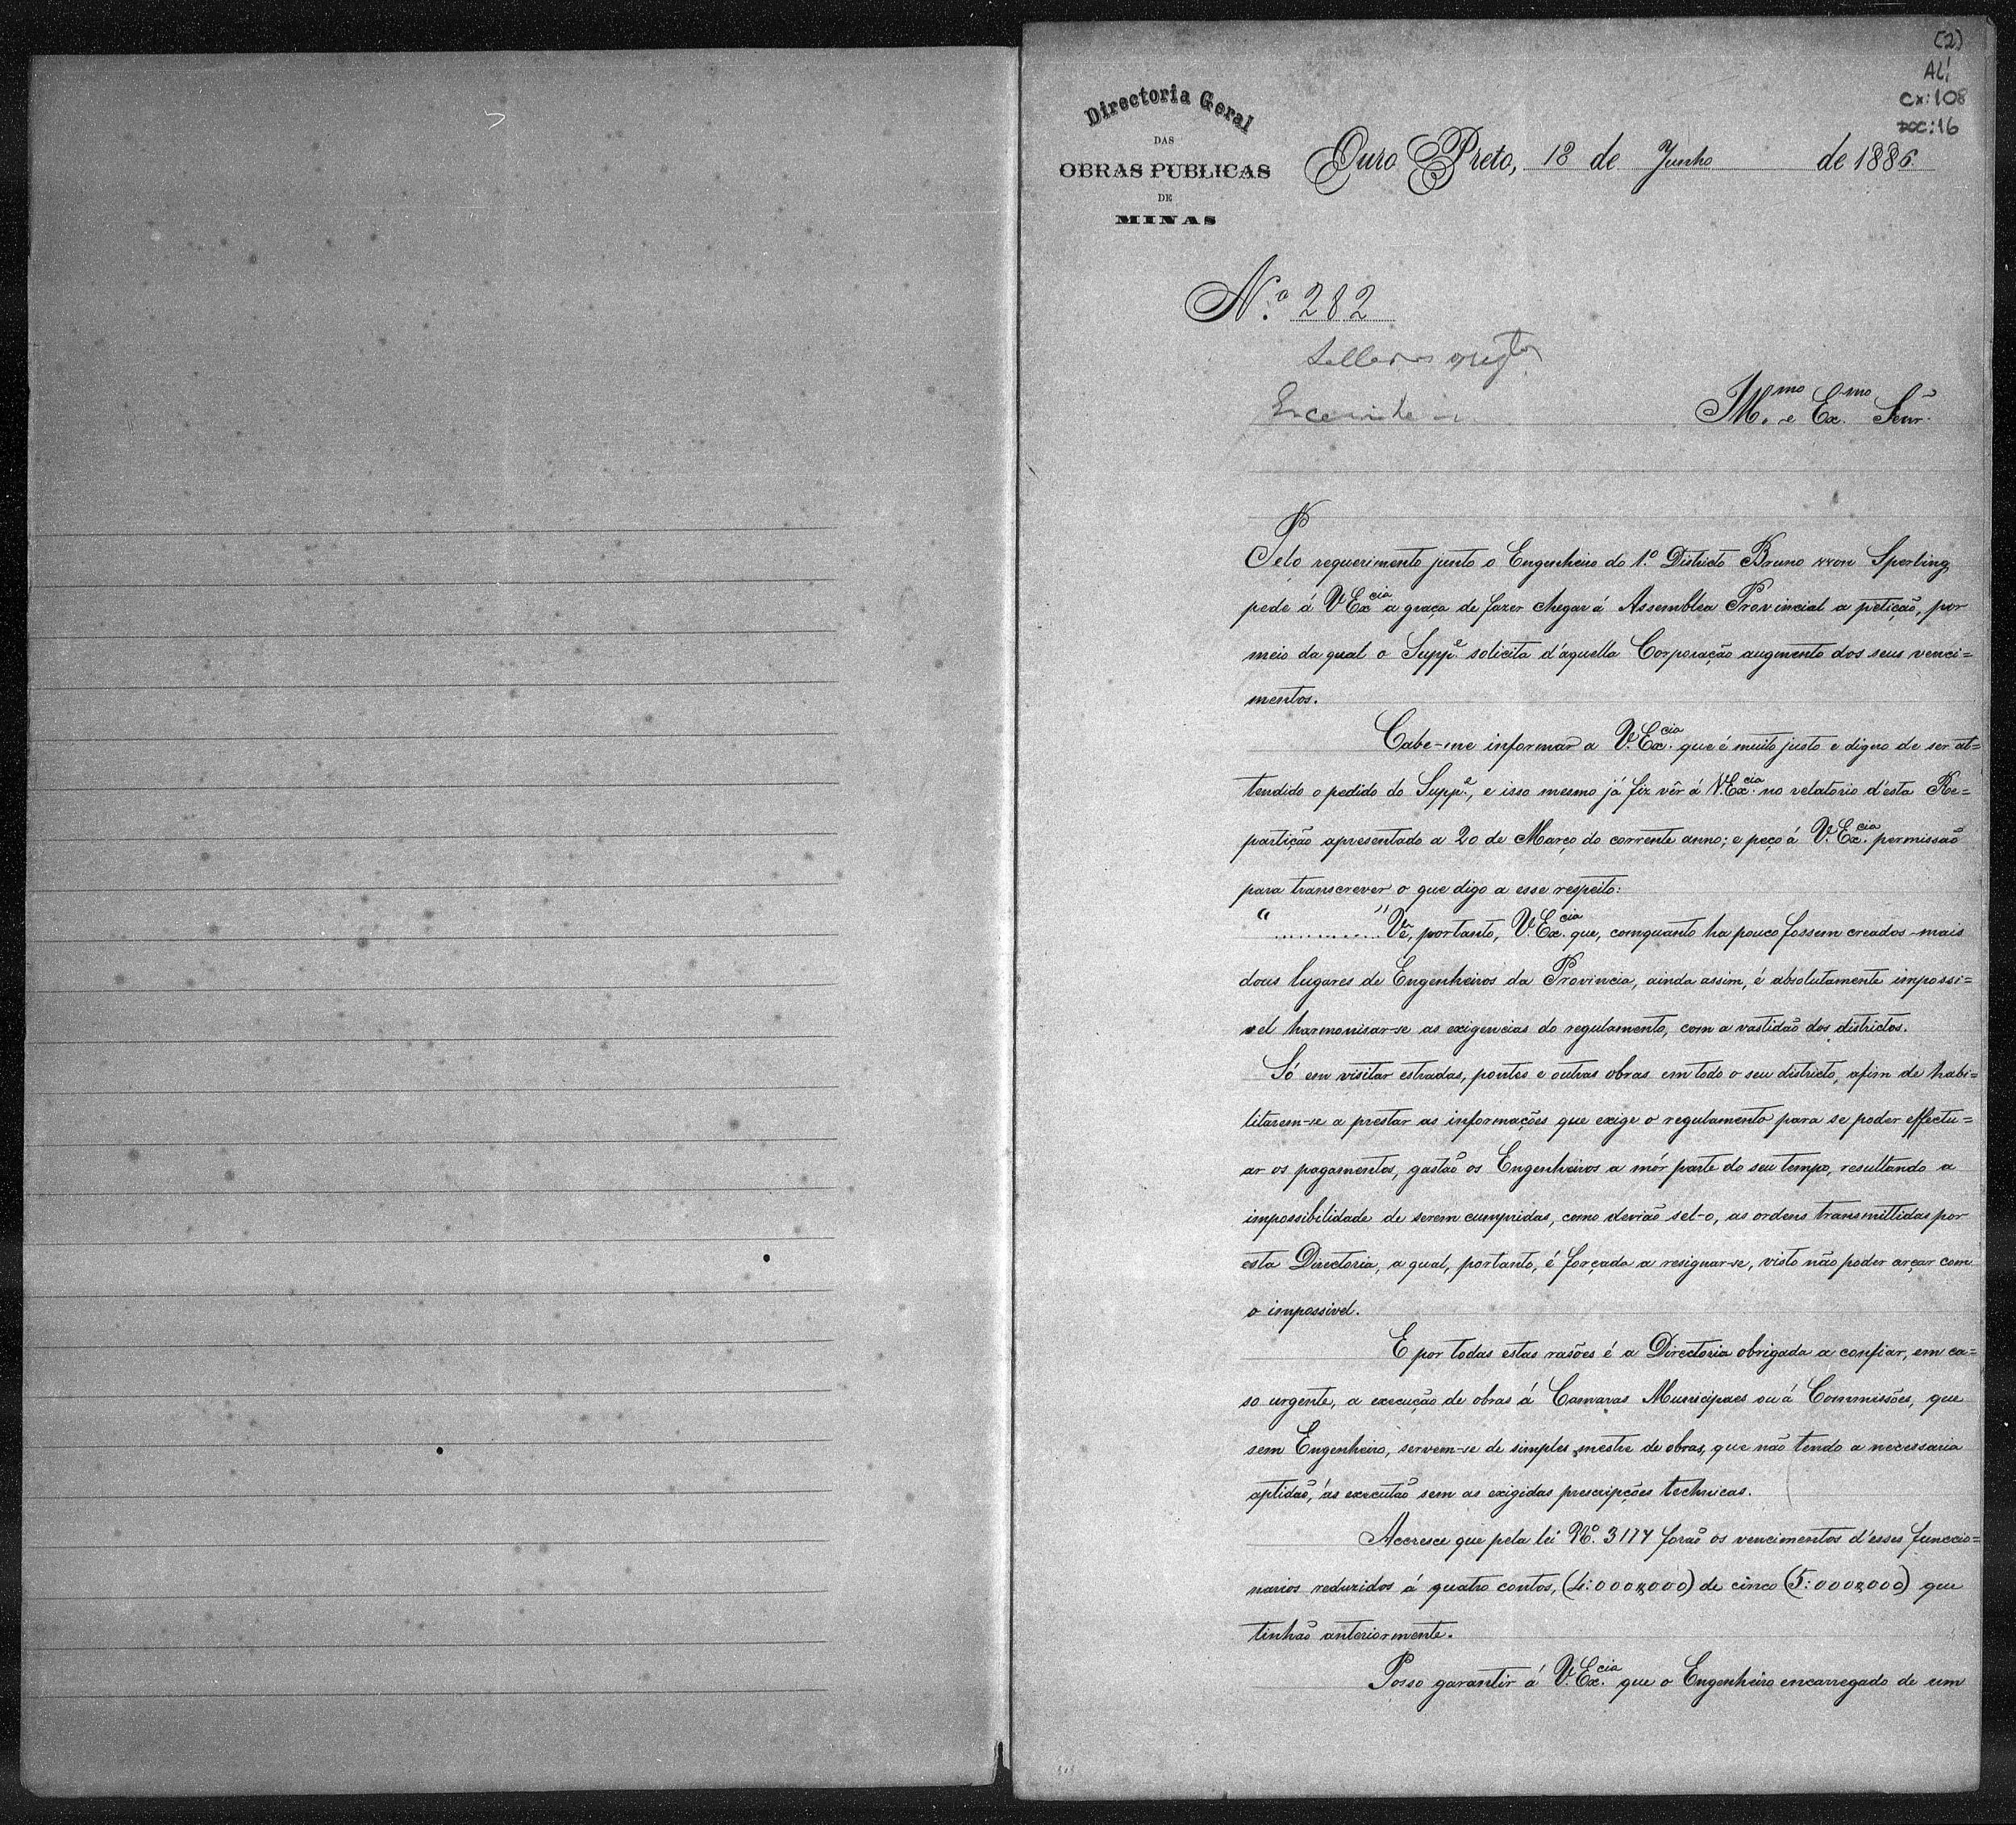 (2)
ALI
cx:108
doc:16
Directoria Geral
DAS
OBRAS PUBLICAS
DE
MINAS
Ouro Preto, 18 de Junho de 1886
N.º 282
Ill.mo e Ex.mo Senr.
Pelo requerimento junto o Engenheiro do 1.º Districto Bruno von Sperling
pede á V.Ex.cia a graça de fazer chegar á Assemblea Provincial a petição, por
meio da qual o Supp.e solicita d'aquella Corporação augmento dos seus venci=
mentos.
Cabe-me informar a V.Ex.cia que é muito justo e digno de ser at=
tendido o pedido do Supp.e, e isso mesmo já fiz vêr á V.Ex.cia no relatorio d'esta Re=
partição apresentado a 20 de Março do corrente anno; e peço á V.Ex.cia permissão
para transcrever o que digo a esse respeito:
" ............ " Vê, portanto, V.Ex.cia que, comquanto ha pouco fossem creados mais
dous lugares de Engenheiros da Provincia, ainda assim, é absolutamente impossi=
vel harmonisar-se as exigencias do regulamento, com a vastidão dos districtos.
Só em visitar estradas, pontes e outras obras em todo o seu districto, afim de habi=
litarem-se a prestar as informações que exige o regulamento para se poder effectu=
ar os pagamentos, gastão os Engenheiros a mór parte do seu tempo, resultando a
impossibilidade de serem cumpridas, como devião sel-o, as ordens transmittidas por
esta Directoria, a qual, portanto, é forçada a resignar-se, visto não poder arcar com
o impossivel.
E por todas estas rasões é a Directoria obrigada a confiar, em ca=
so urgente, a execução de obras á Camaras Municipaes ou á Commissões, que
sem Engenheiro, servem-se de simples mestre de obras, que não tendo a necessaria
aptidão, ás executão sem as exigidas prescripções technicas.
Accresce que pela lei N.º 3117 forão os vencimentos d'esses funccio=
narios reduzidos á quatro contos, (4:000$000) de cinco (5:000$000) que
tinhão anteriormente.
Posso garantir á V.Ex.cia que o Engenheiro encarregado de um